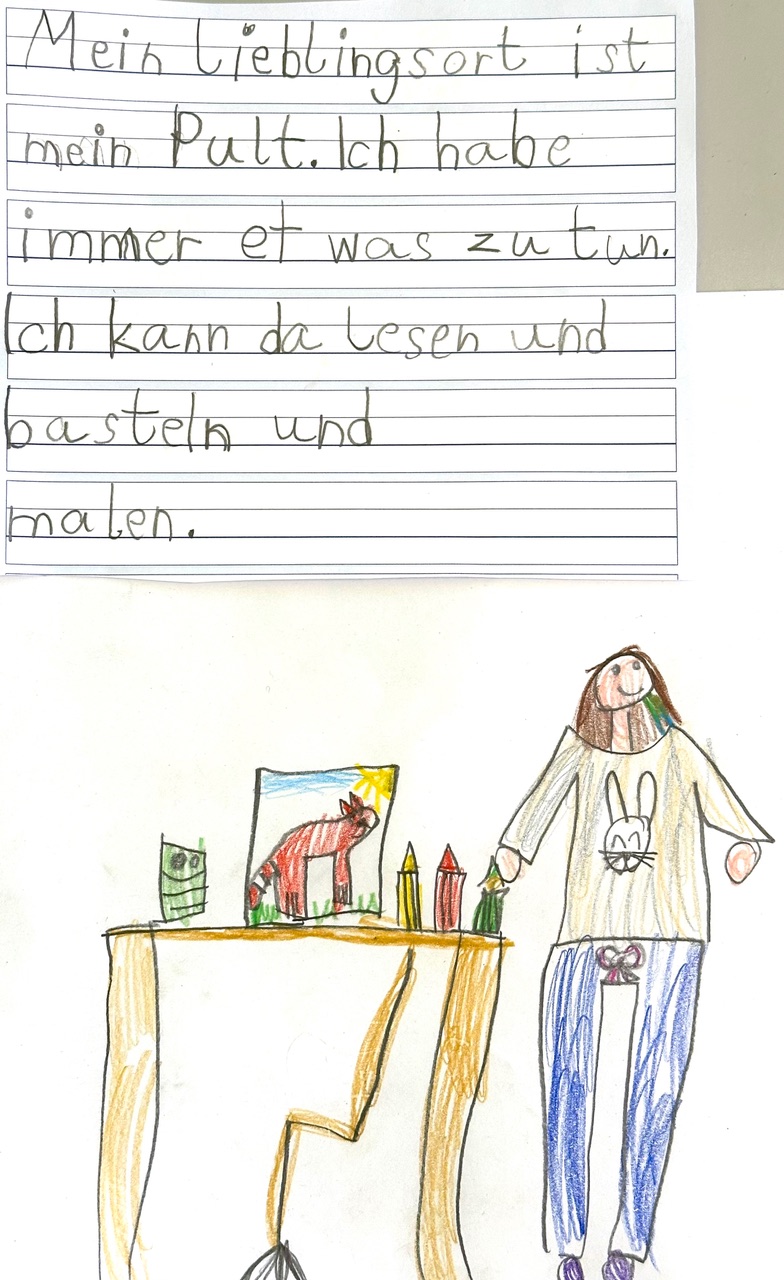 Mein Lieblingsort ist
mein Pult. Ich habe
immer et was zu tun.
Ich kann da lesen und
basteln und
malen.